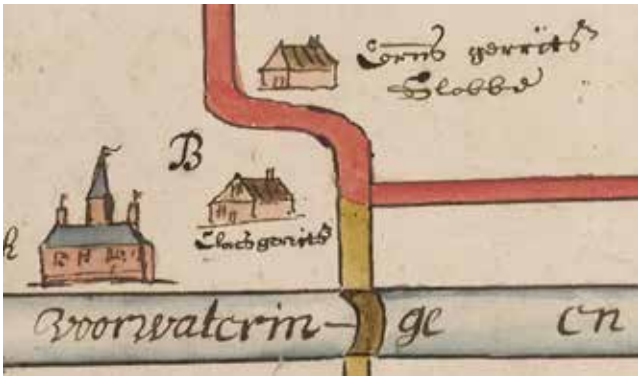 Corns gerrits
Slobbe
B
Claes gerrits
voorwaterin- ge en